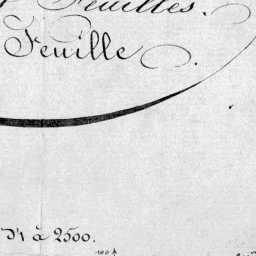 Feuilles.
Feuille
D'1 à 2500.